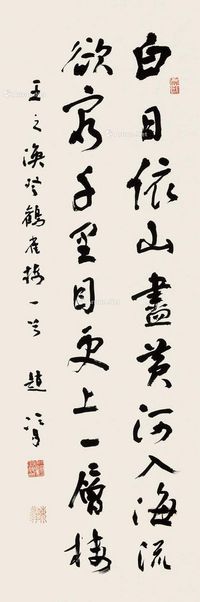 白日依山盡黄河入海流
欲窮千里目更上一層樓
王之渙登鶴雀樓一首 題